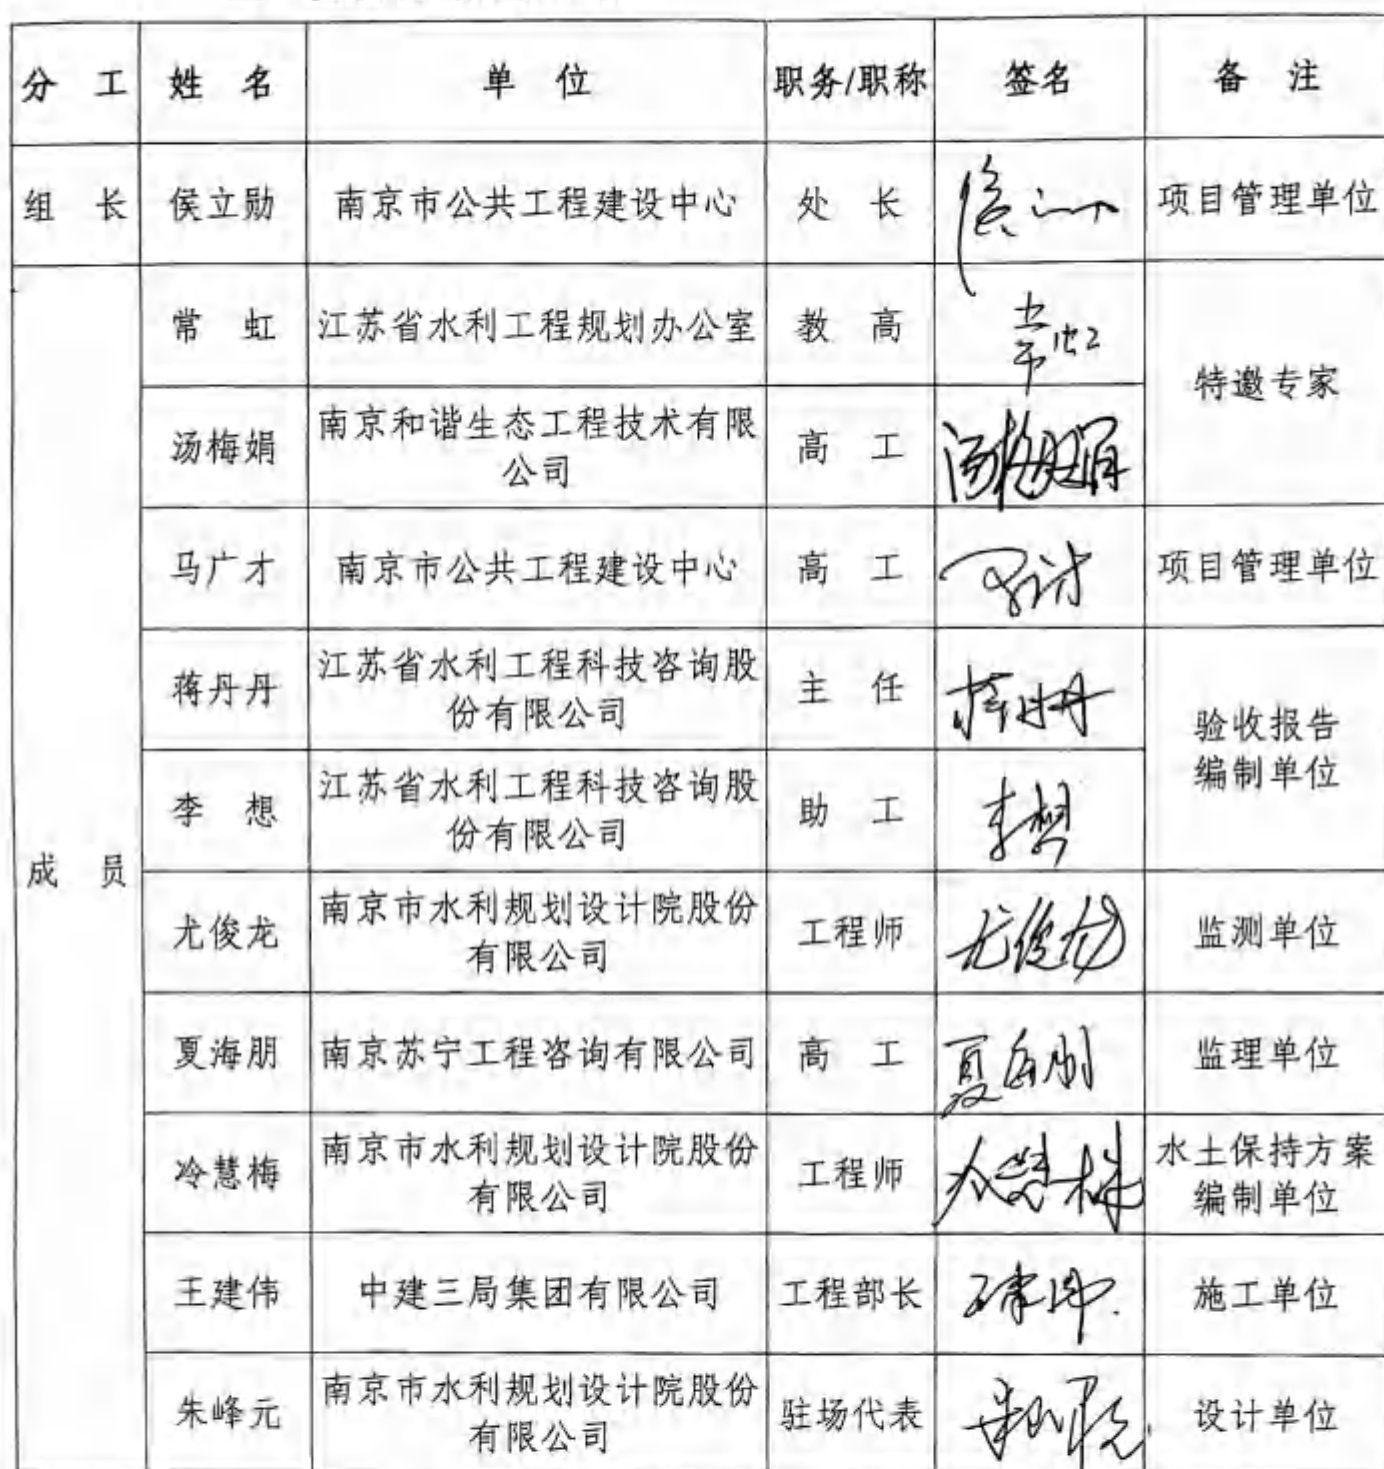 分 工 姓 名 单 位 职务/职称 签名 备 注
组 长 侯立勋 南京市公共工程建设中心 处 长 项目管理单位
成 员
常 虹 江苏省水利工程规划办公室 教 高 常虹
特邀专家
汤梅娟 南京和谐生态工程技术有限
公司 高 工 汤梅娟
马广才 南京市公共工程建设中心 高 工 项目管理单位
蒋丹丹 江苏省水利工程科技咨询股
份有限公司 主 任 蒋丹丹
验收报告
编制单位
李 想 江苏省水利工程科技咨询股
份有限公司 助 工 李想
尤俊龙 南京市水利规划设计院股份
有限公司 工程师 尤俊龙 监测单位
夏海朋 南京苏宁工程咨询有限公司 高 工 夏海朋 监理单位
冷慧梅 南京市水利规划设计院股份
有限公司 工程师 冷慧梅 水土保持方案
编制单位
王建伟 中建三局集团有限公司 工程部长 王建伟 施工单位
朱峰元 南京市水利规划设计院股份
有限公司 驻场代表 朱峰元 设计单位